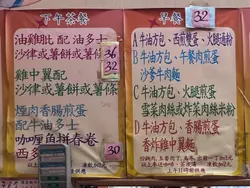 下午茶餐
油雞髀 配 油多士
沙律或薯條
36
雞中翼配
32
沙律或薯條
煙肉香腸煎蛋
配牛油多士
咖喱魚拼春卷
西多
30
早餐
32
A 牛油方包、西煎雙蛋、火腿湯粉
B 牛油方包、午餐肉煎蛋
沙爹牛肉麵
C 牛油方包、火腿煎蛋
雪菜肉絲或炸菜肉絲米粉
D 牛油方包、香腸煎蛋
香炸雞中翼麵